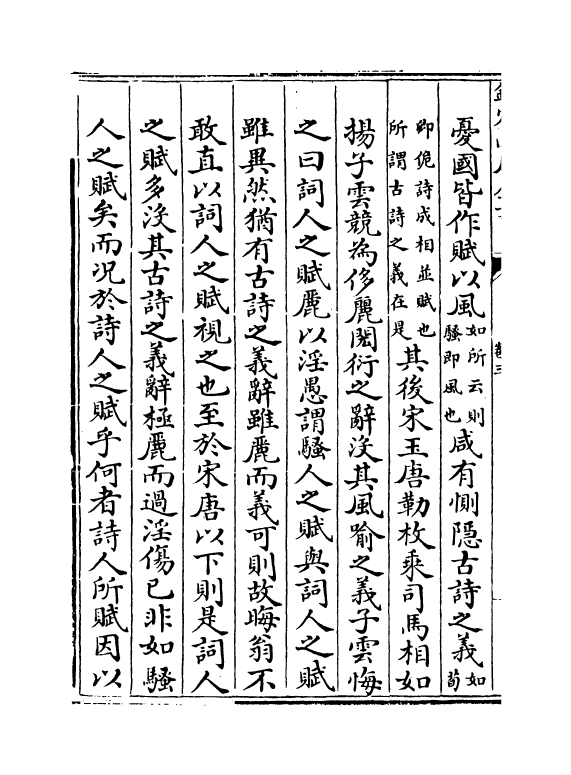 卷三
憂國皆作賦以風如所云則騷即風也咸有惻隱古詩之義如荀
卽佹詩成相並賦也所謂古詩之義在是其後宋玉唐勒枚乘司馬相如
揚子雲競為侈麗閎衍之辭沒其風喻之義子雲悔
之曰詞人之賦麗以淫愚謂騷人之賦與詞人之賦
雖異然猶有古詩之義辭雖麗而義可則故晦翁不
敢直以詞人之賦視之也至於宋唐以下則是詞人
之賦多沒其古詩之義辭極麗而過淫傷已非如騷
人之賦矣而况於詩人之賦乎何者詩人所賦因以